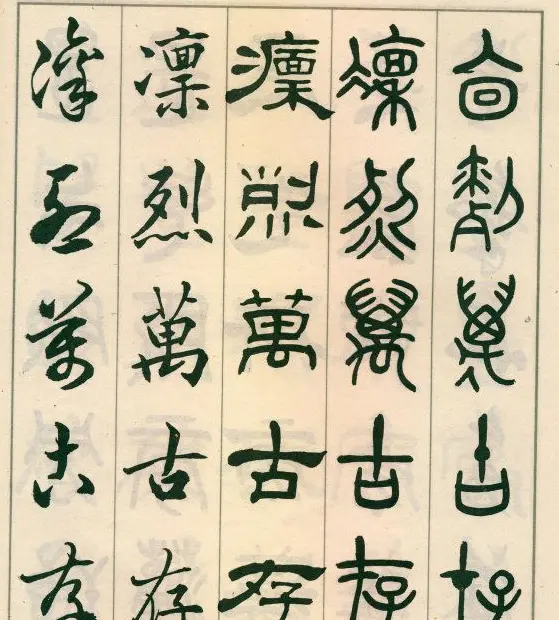 凛烈萬古存
凛烈萬古存
凛烈萬古存
凛烈萬古存
凛烈萬古存